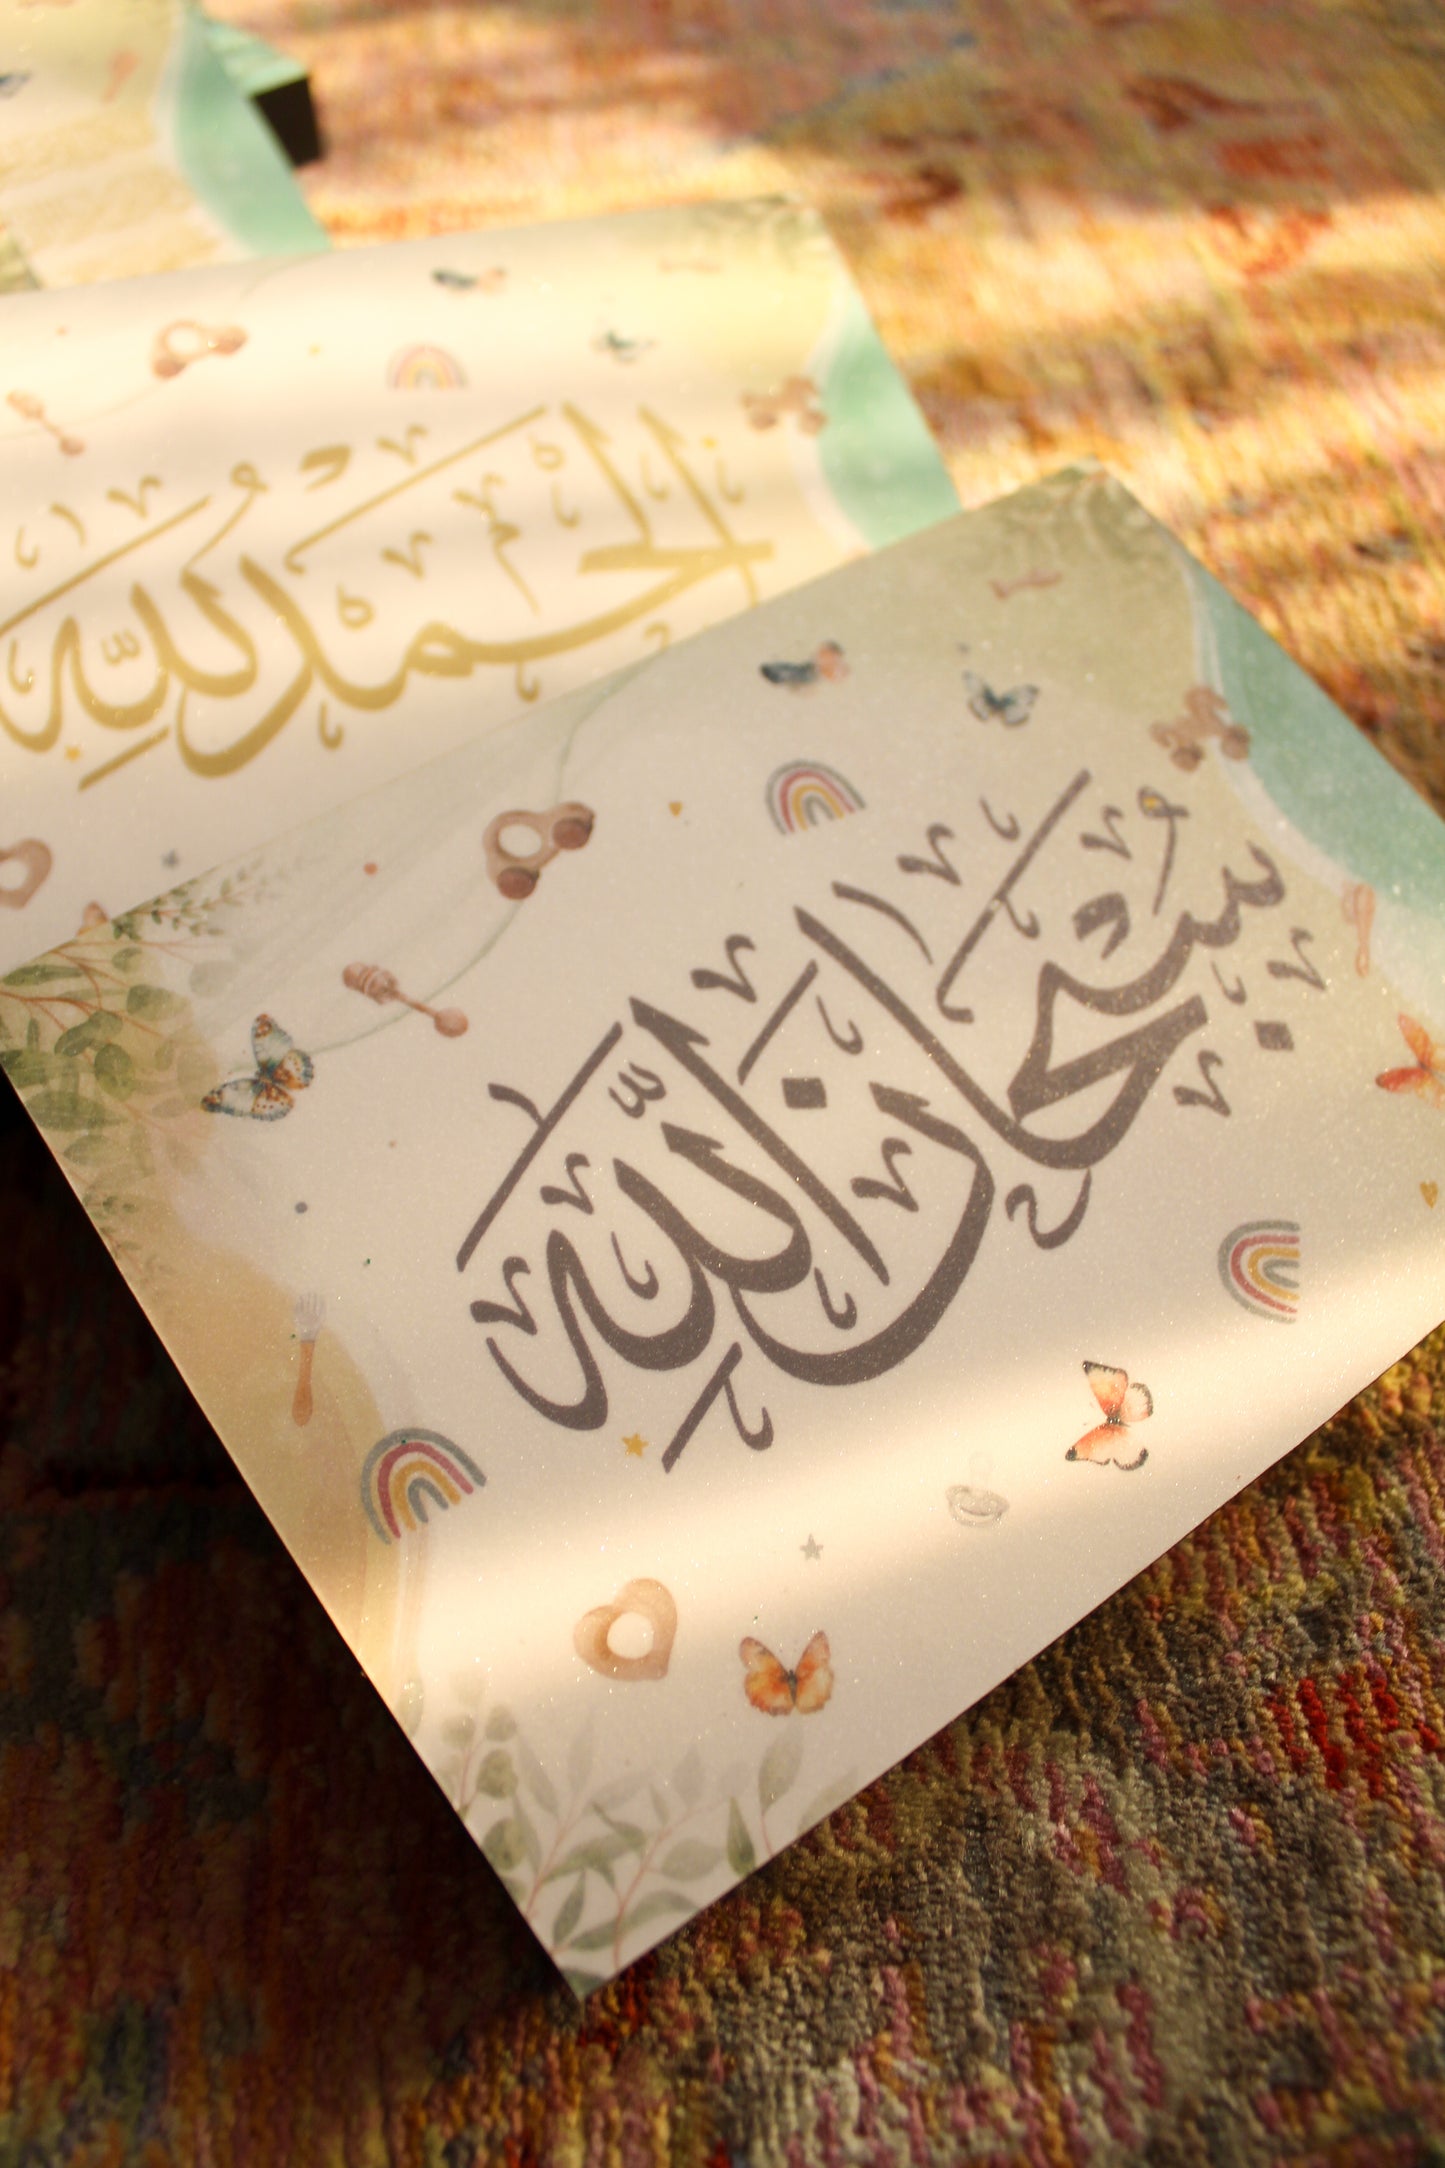 الحمد لله
سبحان الله